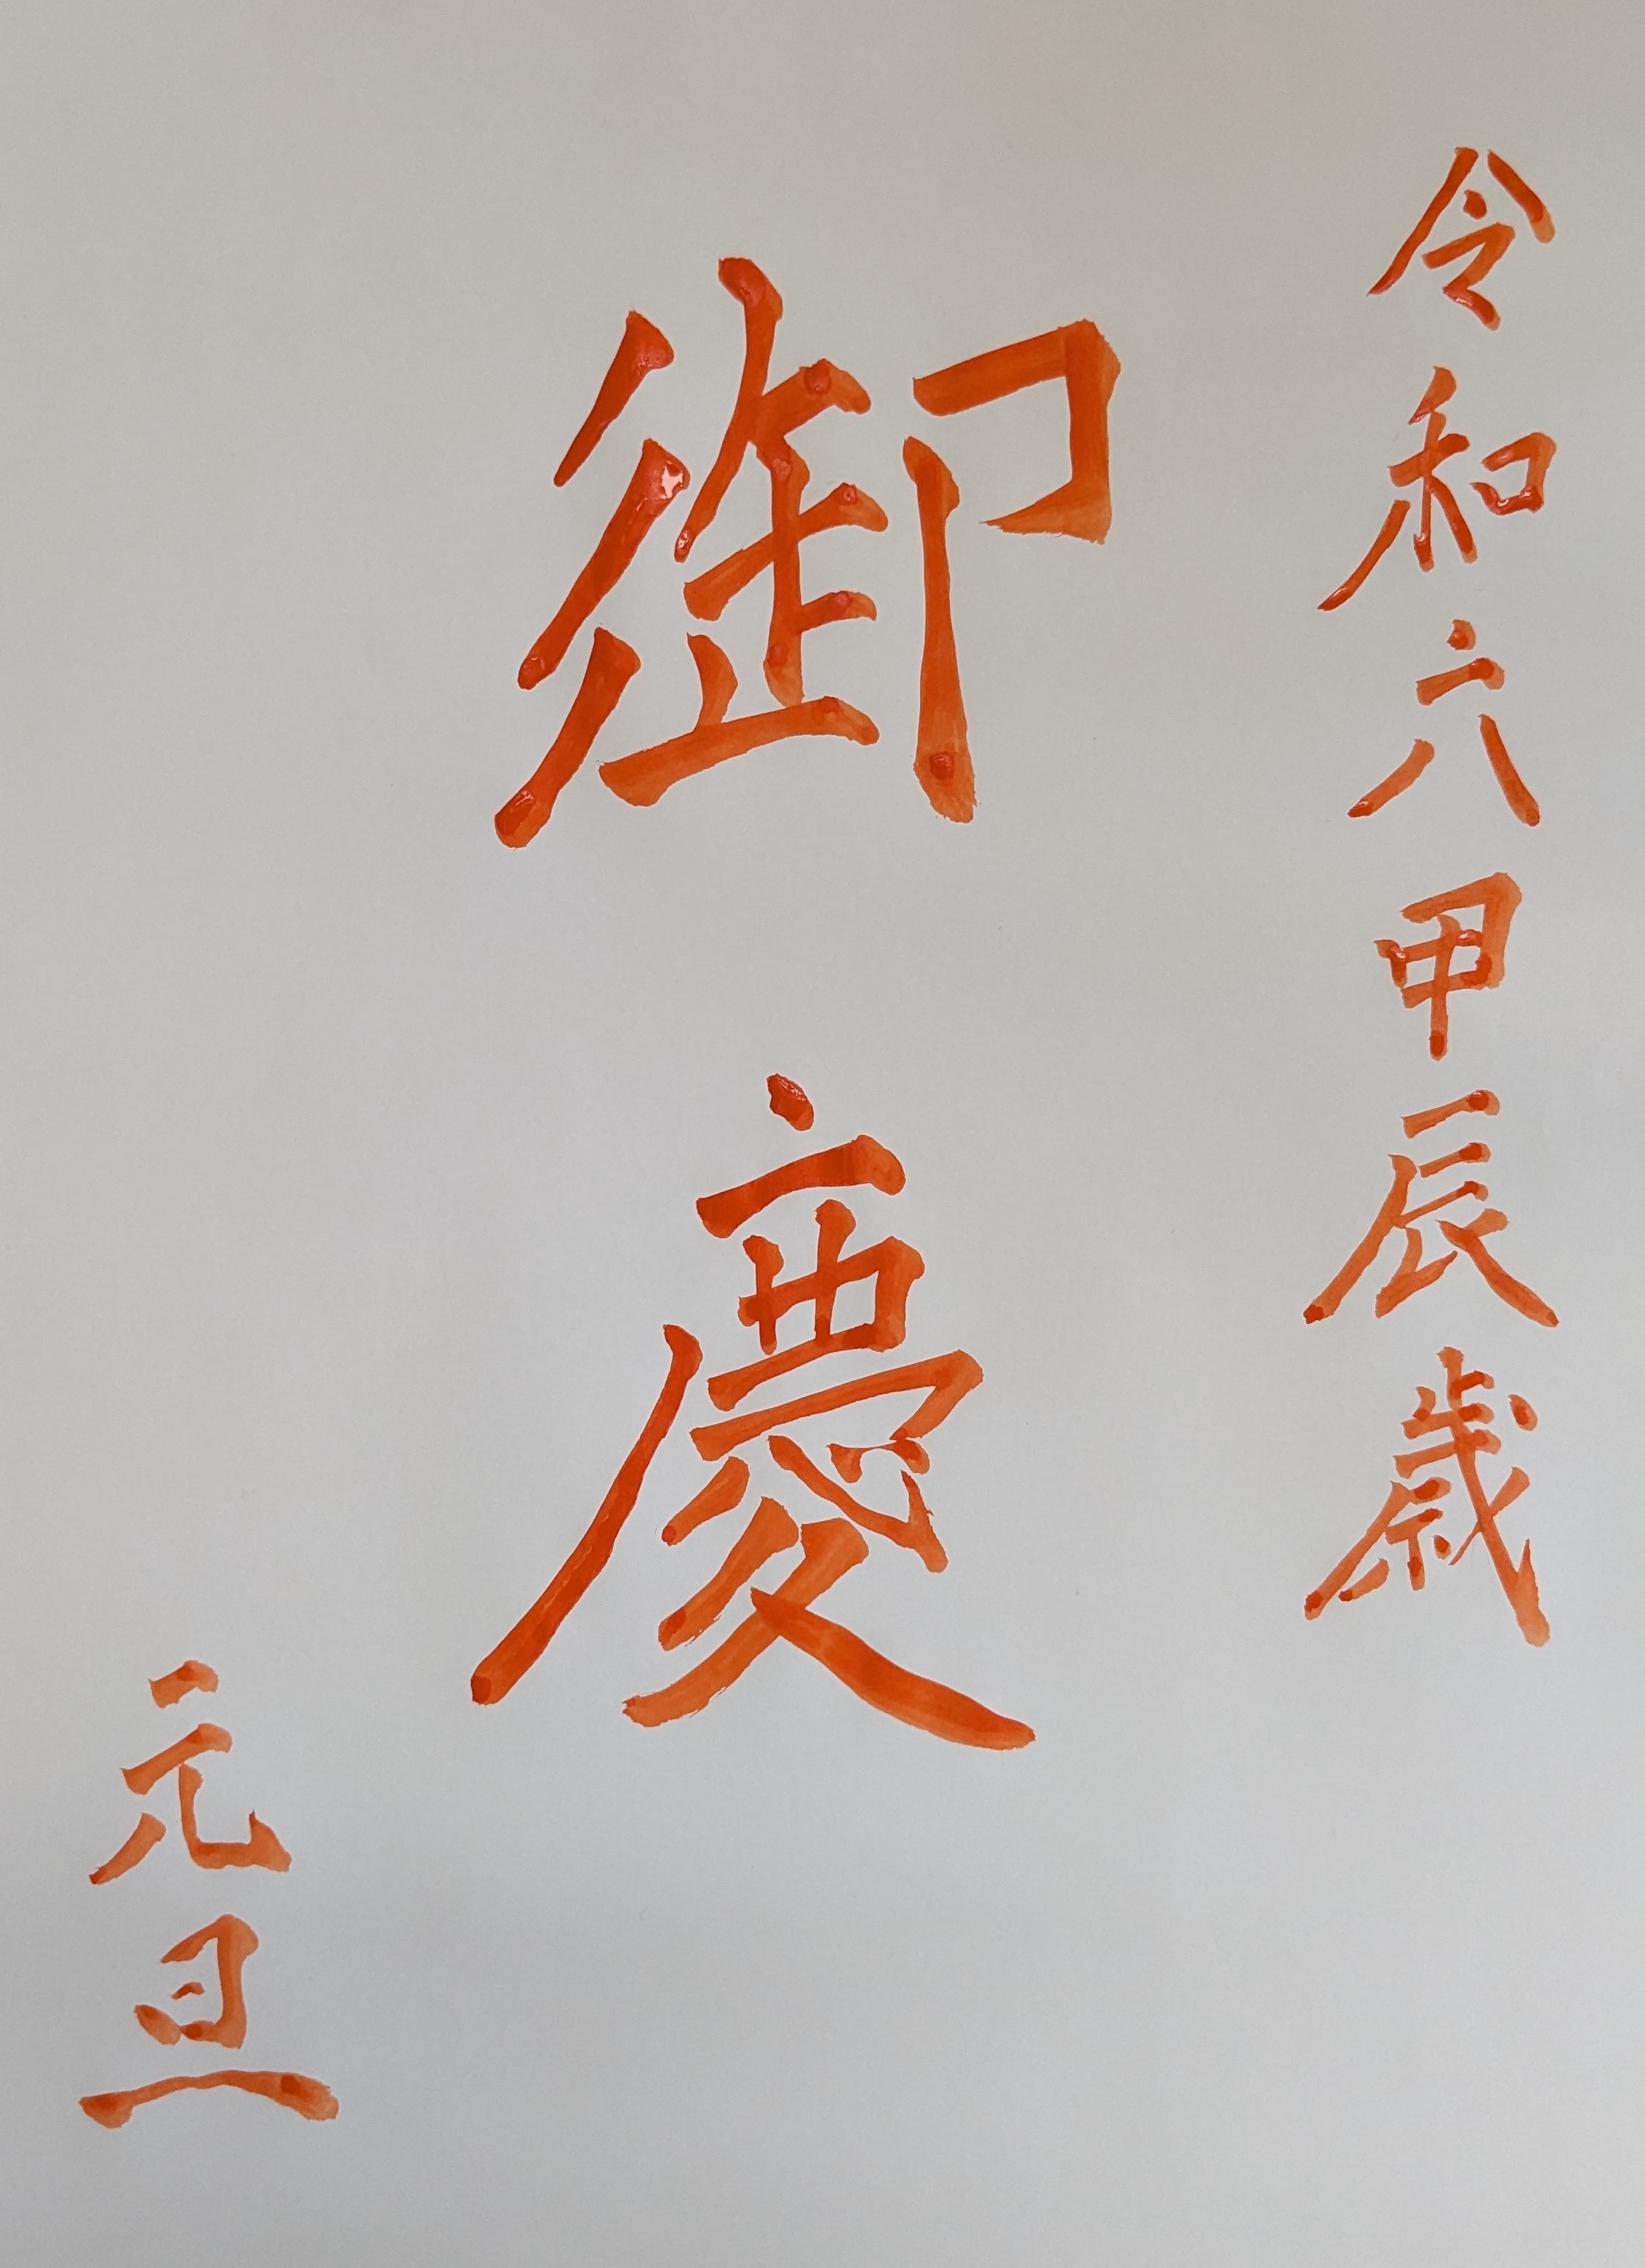 令和六甲辰歳
御慶
元旦